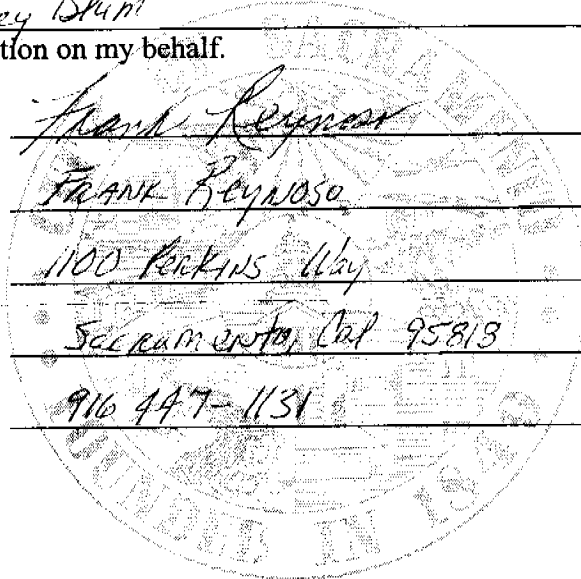 ey Blum
tion on my behalf.
Frank Reynoso
FRANK REYNOSO
1100 PERKINS Way
Sacramento, Cal 95818
916 447-1131
SACRAMENTO